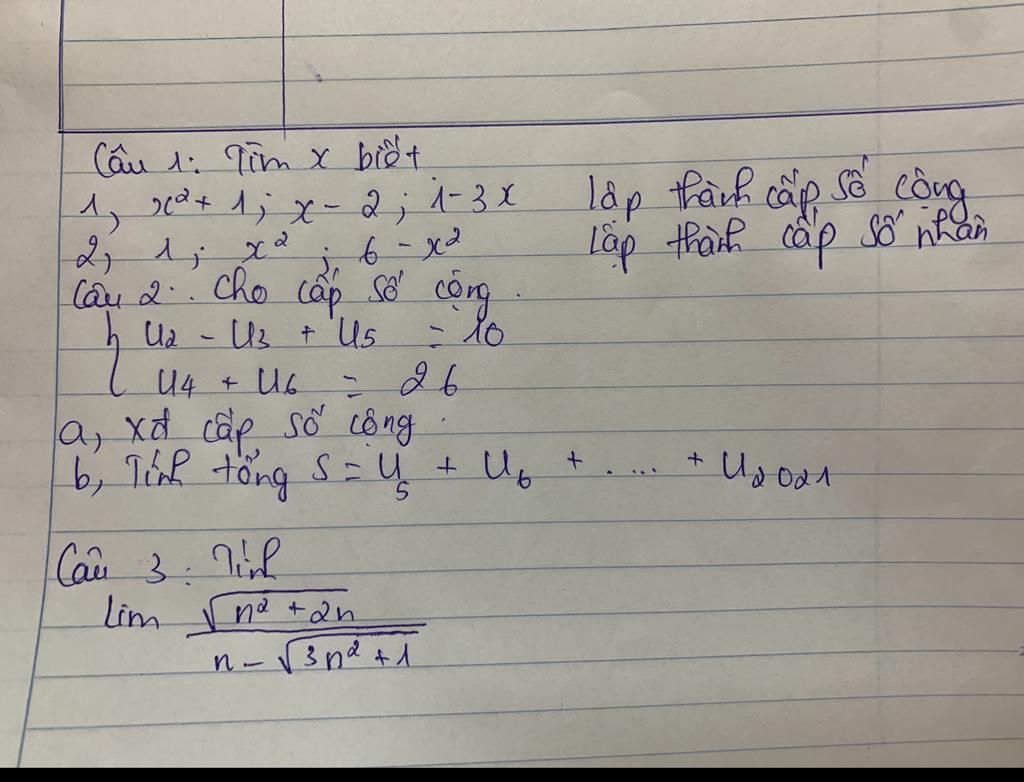 Câu 1: Tìm x biết
1, x² + 1; x - 2; 1 - 3x lập thành cấp số cộng
2, 1; x²; 6 - x² lập thành cấp số nhân
Câu 2: Cho cấp số cộng.
{ U₂ - U₃ + U₅ = 10
U₄ + U₆ = 26
a, xđ cấp số cộng.
b, Tính tổng S = U₅ + U₆ + .... + U₂₀₂₁
Câu 3: Tính
lim √(n² + 2n) / (n - √(3n² + 1))